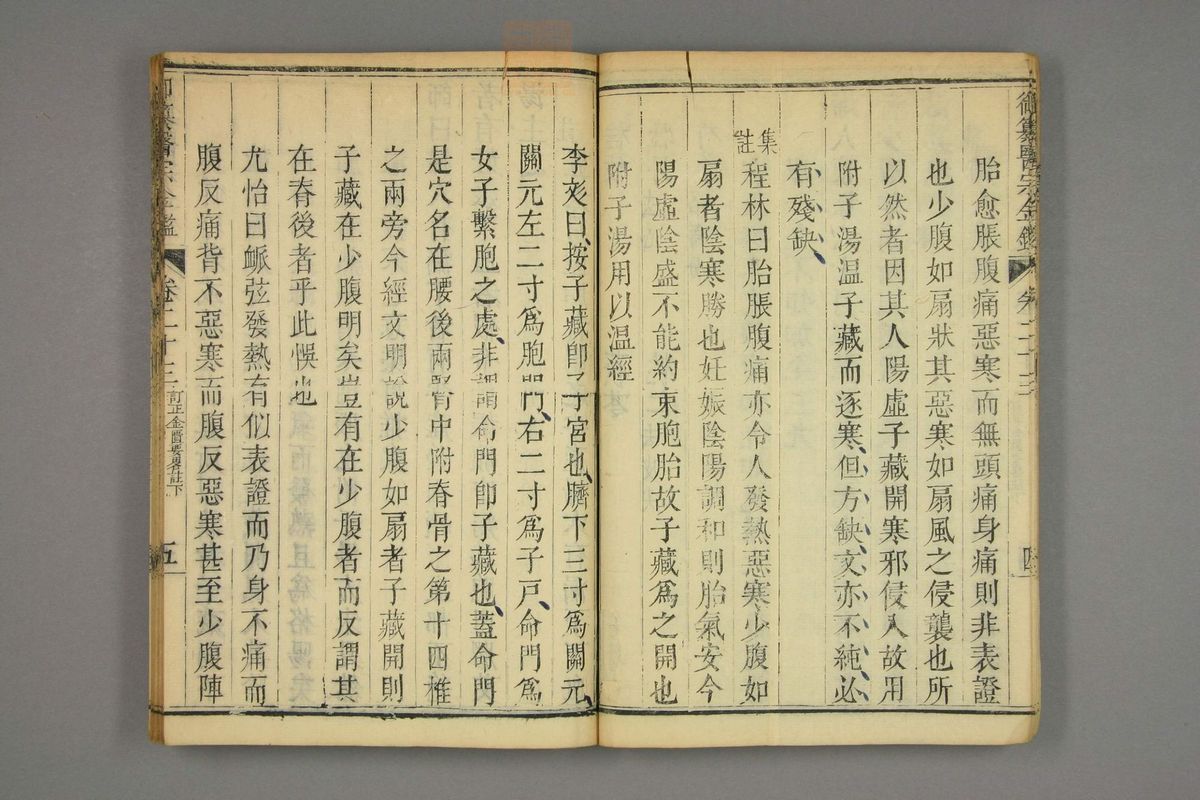 御纂醫宗金鑑 卷二十三 四
胎愈脹腹痛惡寒而無頭痛身痛則非表證
也少腹如扇狀其惡寒如扇風之侵襲也所
以然者因其人陽虛子藏開寒邪侵入故用
附子湯温子藏而逐寒但方缺文亦不純必
有殘缺
集註 程林曰胎脹腹痛亦令人發熱惡寒少腹如
扇者陰寒勝也妊娠陰陽調和則胎氣安今
陽虛陰盛不能約束胞胎故子藏為之開也
附子湯用以温經
李彣曰按子藏即子宮也臍下三寸爲關元
關元左二寸爲胞門右二寸爲子戸命門爲
女子繫胞之處非謂命門卽子藏也蓋命門
是穴名在腰後兩腎中附脊骨之第十四椎
之兩旁今經文明說少腹如扇者子藏開則
子藏在少腹明矣豈有在少腹者而反謂其
在脊後者乎此悞也
尤怡曰脈弦發熱有似表證而乃身不痛而
腹反痛背不惡寒而腹反惡寒甚至少腹陣
御纂醫宗金鑑 卷二十三 訂正金匱要畧註下 五